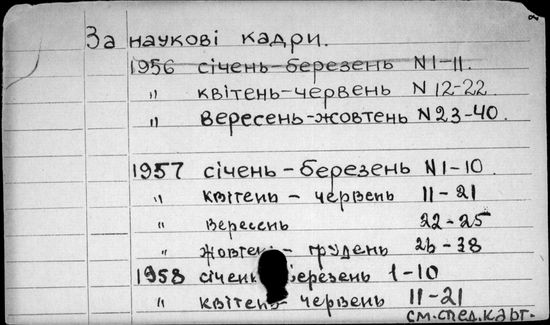 За наукові кадри.
1956 січень-березень N 1-11.
" квітень-червень N 12-22
" вересень-жовтень N 23-40.
1957 січень-березень N 1-10
" квітень-червень 11-21
" вересень 22-25
" жовтень-грудень 26-38
1958 січень березень 1-10
" квітень червень 11-21
см.спец.карт.